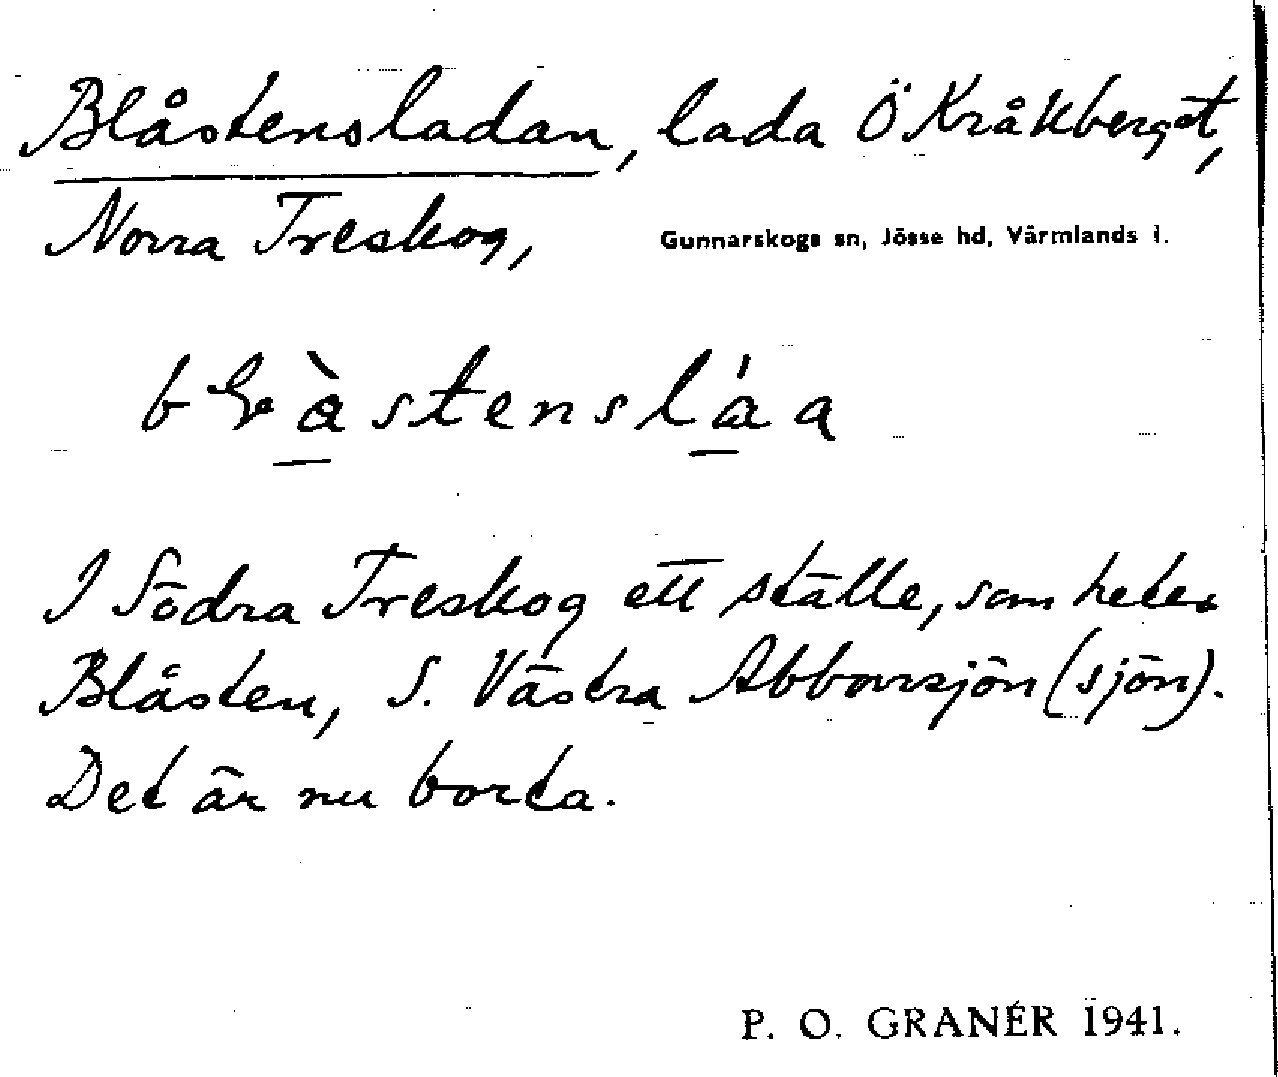 Blåstensladan, lada Ö Kråkberget,
Norra Treskog, Gunnarskogs sn, Jösse hd, Värmlands l.
I Södra Treskog ett ställe, som heter
Blåsten, S. Västra Abborrsjön (sjön).
Det är nu borta.
P. O. GRANÉR 1941.